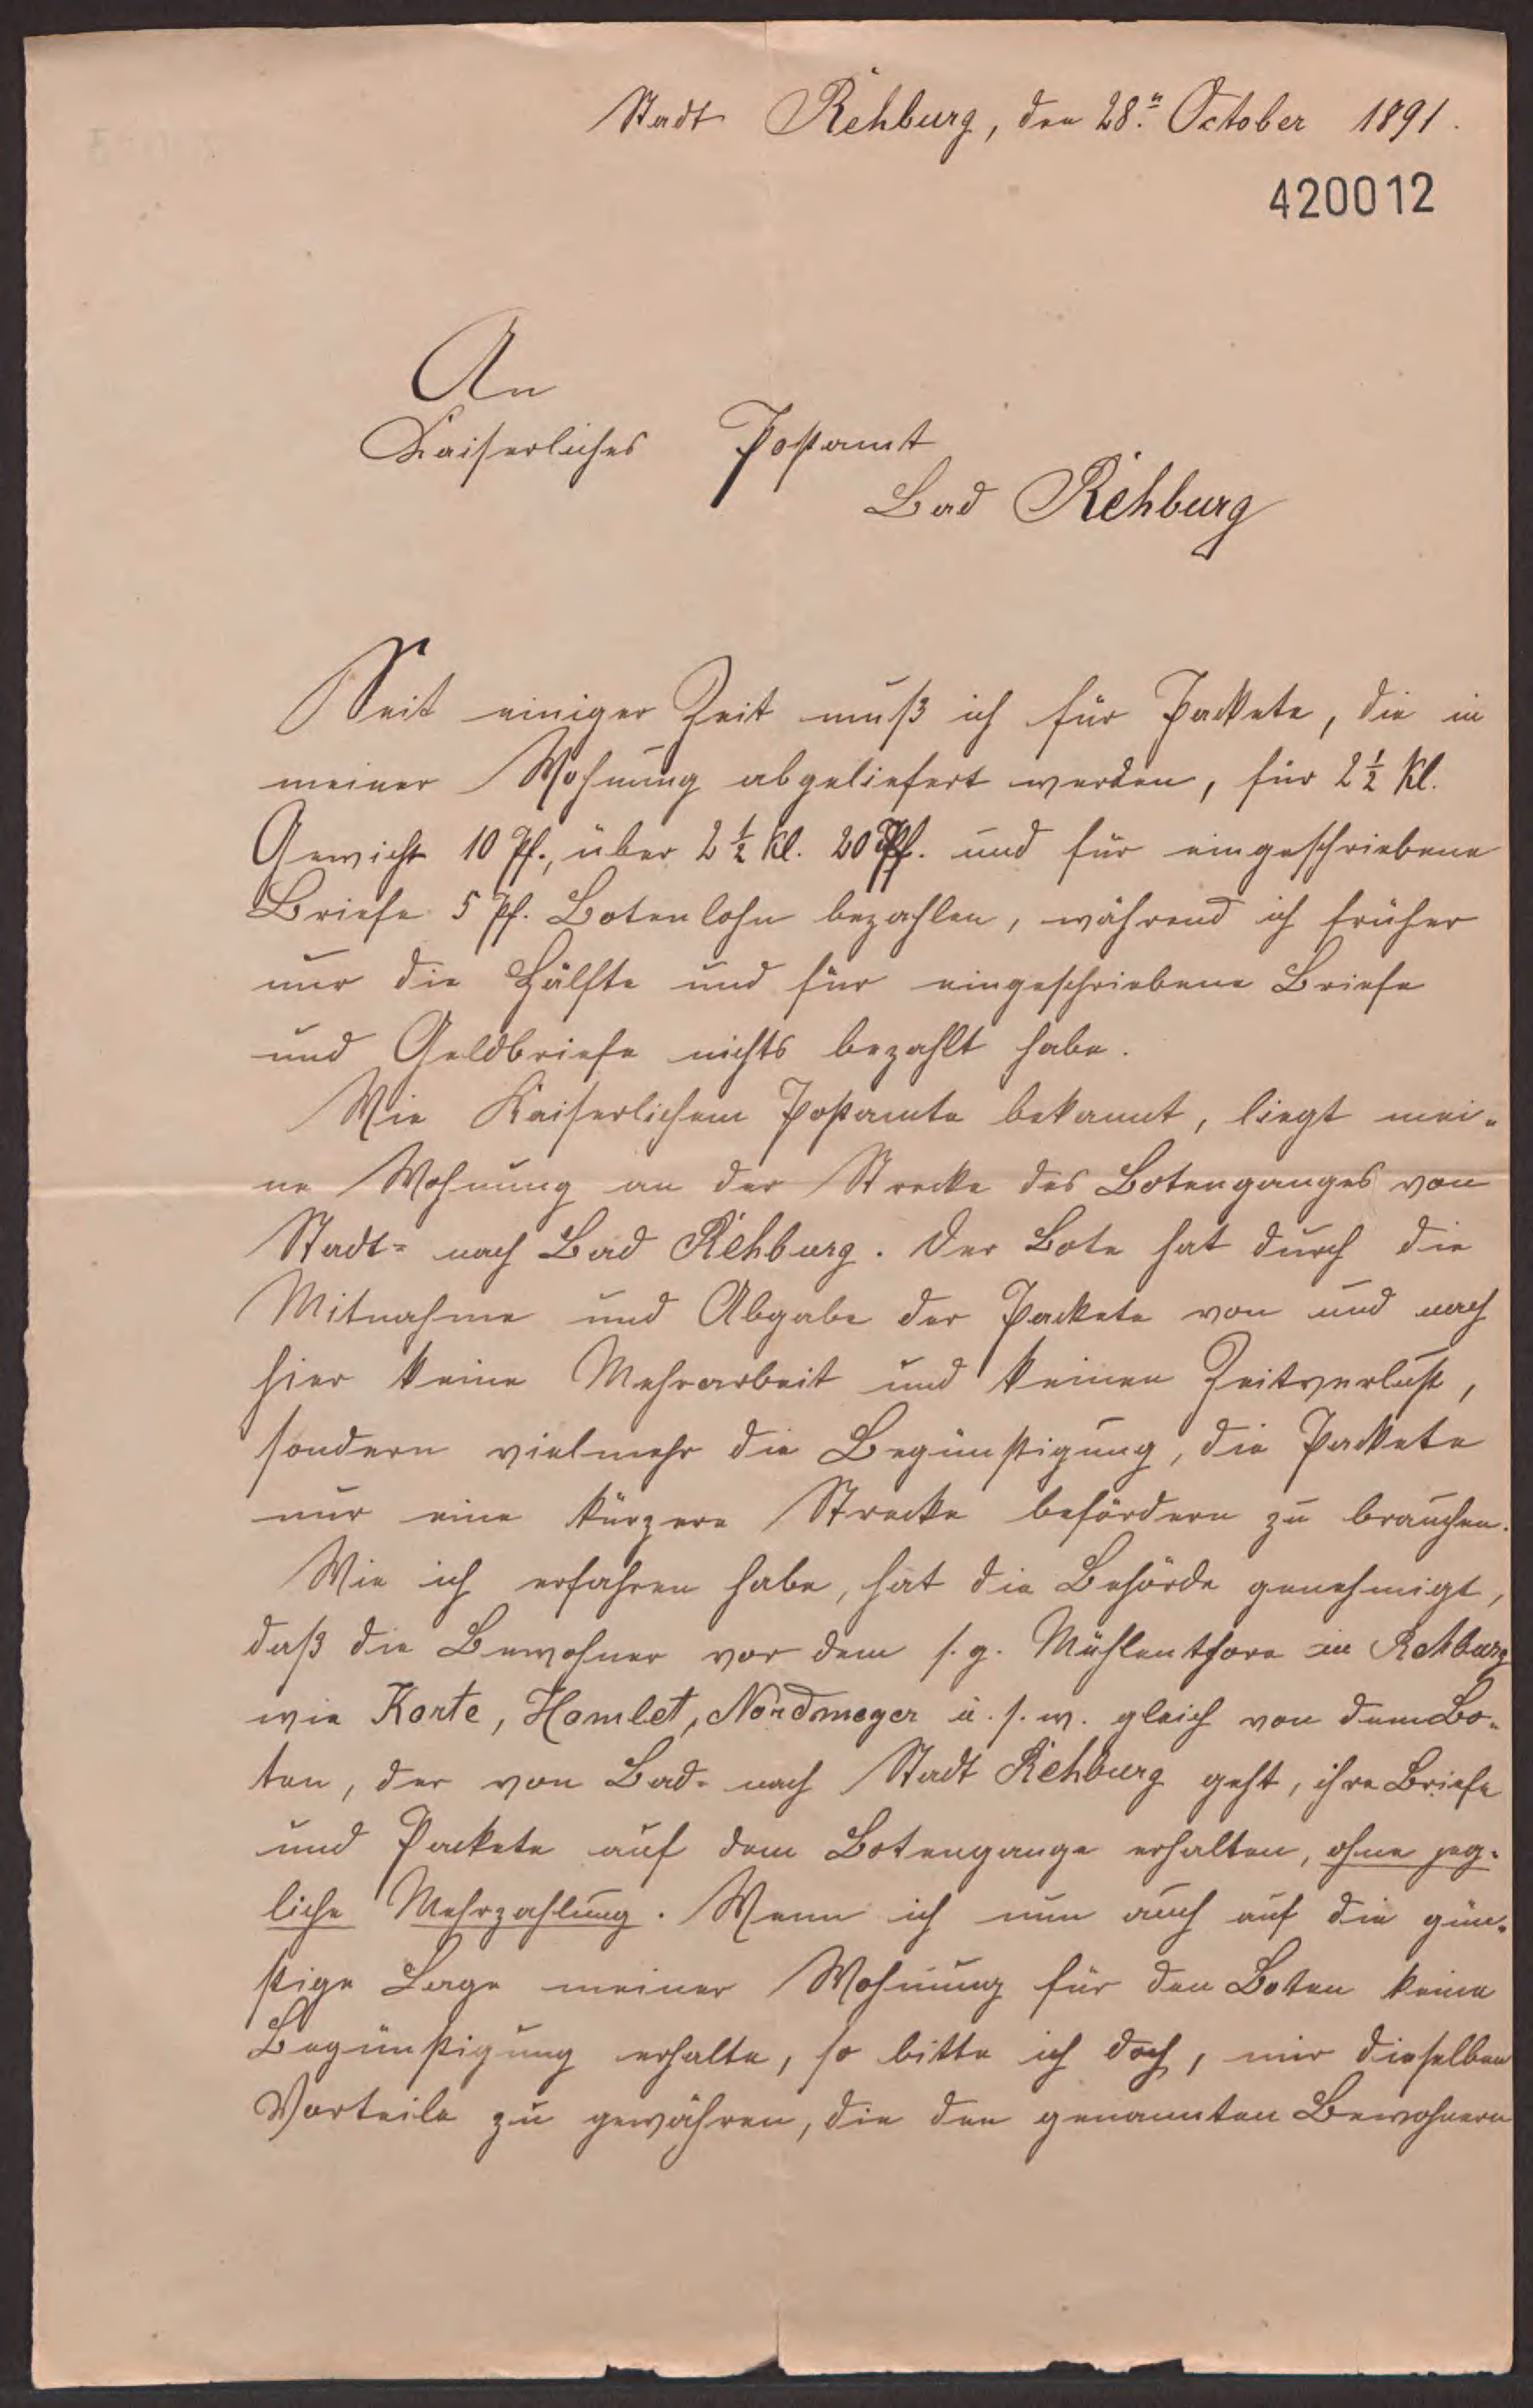 Stadt Rehburg, den 28.n October 1891.
420012
An
Kaiserliches Postamt
Bad Rehburg
Seit einiger Zeit muß ich für Packete, die in
meiner Wohnung abgeliefert werden, für 2 1/2 Kl.
Gewicht 10 Pf., über 2 1/2 Kl. 20 Pf. und für eingeschriebene
Briefe 5 Pf. Botenlohn bezahlen, während ich früher
nur die Hälfte und für eingeschriebene Briefe
und Geldbriefe nichts bezahlt habe.
Wie Kaiserlichem Postamte bekannt, liegt mei-
ne Wohnung an der Strecke des Botenganges von
Stadt- nach Bad Rehburg. Der Bote hat durch die
Mitnahme und Abgabe der Packete von und nach
hier keine Mehrarbeit und keinen Zeitverlust,
sondern vielmehr die Begünstigung, die Packete
nur eine kürzere Strecke befördern zu brauchen.
Wie ich erfahren habe, hat die Behörde genehmigt,
daß die Bewohner vor dem s. g. Mühlenthore in Rehburg
wie Korte, Hamlet, Nordmeyer u. s. w. gleich von dem Bo-
ten, der von Bad- nach Stadt Rehburg geht, ihre Briefe
und Packete auf dem Botengange erhalten, ohne jeg-
liche Mehrzahlung. Wenn ich nun auch auf die gün-
stige Lage meiner Wohnung für den Boten keine
Begünstigung erhalte, so bitte ich doch, mir dieselben
Vorteile zu gewähren, die den genannten Bewohnern